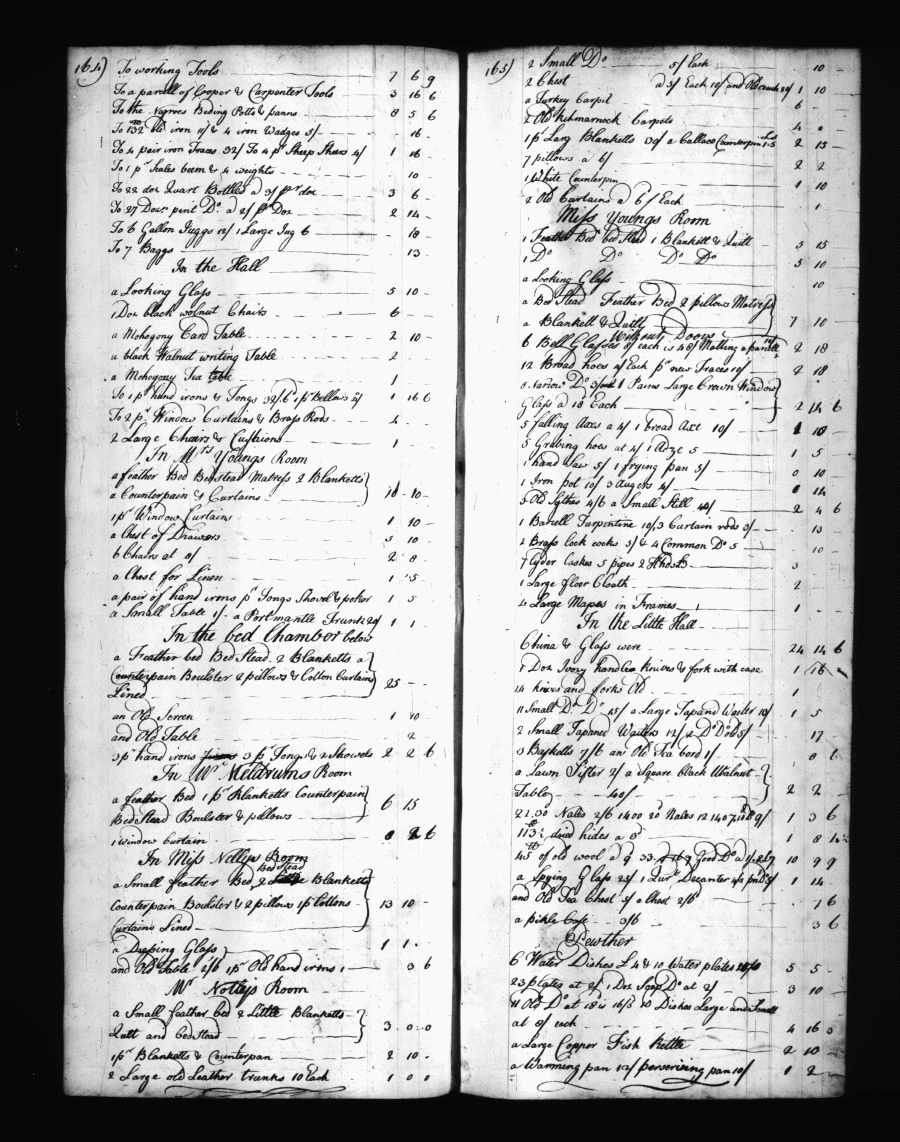 164)
To working Tools 7 6 9
To a parcell of Cooper & Carpenter Tools 3 16 6
To the Negroes Beding Potts & panns 8 5 6
To 132 old iron 11/ & 4 iron Wadges 5/ 16
To 4 pair iron Traces 32/ To 4 pr Sheep Shears 4/ 1 16
To 1 pr Scales beem & 4 weights 10
To 22 doz Quart Bottles a 3/ pr doz 3 6
To 27 Dozn pint Do a 2/ pr Doz 2 14
To 6 Gallon Juggs 12/ 1 Large Jug 6 18
To 7 Baggs 13
In the Hall
a Looking Glass 5 10
1 Doz black wolnut Chairs 6
a Mohogony Card Table 2 10
a black Walnut writing Table 2
a Mohogony Tea table 1
To 1 pr hand irons & Tongs 32/6 1 pr Bellows 1 16 6
To 2 pr Window Curtains & Brass Rods 4
2 Large Chairs & Cushions 1
In Mrs Youngs Room
a feather Bed Bedstead Matress 2 Blanketts
a Counterpain & Curtains 10 10
1 pr Window Curtains 1 10
a Chest of Drawers 3 10
6 Chairs at 8/ 2 8
a Chest for Linen 1 5
a pair of hand irons pr Tongs Shovel & poker 1 5
a Small Table 1/ a Portmantle Trunk 20/ 1 1
In the bed Chamber below
a Feather bed Bed Stead 2 Blanketts a
Counterpain Boulster 2 pillows & Cotton Curtains 25
Lined
an Old Screen 1 10
and Old Table 2
3 pr hand irons 3 pr Tongs & 2 Shovels 2 2 6
In Mr Meldrums Room
a feather Bed 1 pr Blanketts Counterpain
Bed Stead Boulster & pillows 6 15
1 window curtain 2 6
In Miss Nellys Room
Bed Stead
a Small feather Bed 2 Blanketts
Counterpain Boulster & 2 pillows 1 pr Cottons 13 10
Curtains Lined
a Dressing Glass 1 1
and Old Table 2/6 1 pr Old hand irons 1 3 6
Mr Notleys Room
a Small feather bed 2 Little Blanketts
Quilt and bed Stead 3 0 0
1 pr Blanketts & Counterpan 2 10
2 Large old Leather trunks 10 Each 1 0 0
165)
2 Small Do 5/ Each 10
2 Chest a 5/ Each 10/ and Old couch 20/ 1 10
a Turkey Carpit 6
2 Old Kichmarnock Carpets 4 0
1 pr Larg Blanketts 30/ a Callaco Counterpin 2 13
7 pillows a 6/ 2 2
1 White Counterpin 1 10
2 Old Curtains a 6/ Each 1
Miss Youngs Room
1 Feather Bed bed Stead 1 Blankett & Quilt 5 15
1 Do Do Do Do 5 10
a Looking Glass 10
a Bed Stead Feather Bed 2 pillows Matress
a Blankett & Quilt 7 10
Without Doors
6 Bell Glasses 8/ each is 48/ Matting 2 18
12 Broad hoes 4/ Each pr new Traces 10/ 2 18
8 Narrow Do 1 Pains Large Crown Window
Glass a 18 Each 2 14 6
5 falling Axes a 4/ 1 broad Axe 10/ 1 10
5 Grubing hoes at 4/ 1 Adze 5 1 5
1 hand Saw 5/ 1 frying pan 5/ 0 10
1 Iron pot 10/ 3 Augers 4/ 0 14
5 Old Sythes 4/6 a Small Still 40/ 2 4 6
1 Barell Turpentine 10/ 3 Curtain rods 3/ 13
2 Brass lock cocks 5/ & 4 Common Do 5 10
7 Cyder Caskes 5 pipes 2 Hhds 3
1 Large floor Cloath 2
4 Large Mapes in Frames 1
In the Little Hall
China & Glass were 24 14 6
1 Doz Ivory handles knives & fork with case 1 16
14 knives and forks Old 1
11 Small Do Do 15/ a Large Japand Waiter 10/ 1 5
2 Small Japaned Waiters 12/ 2 Do Old 5/ 17
3 Basketts 7/6 an Old Tea bord 1/ 8 6
a Lawn Sifter 2/ a Square black Walnut
Table 40/ 2 2
2200 Nales 2/6 1400 20 Nales 12 1407 9/ 1 3 6
113 dried hides a 1 8
45 of old wool a 9 33 Good Do a 10 9 9
a Spying Glass 25/ 1 Quart Decanter 1 14
and Old Tea Chest 5/ a Chest 2/6 7 6
a pickle Case 3/6 3 6
Pewther
6 Water Dishes £4 & 10 Water plates 5 5
23 plates at 2/ 1 Doz Soop Do at 2/ 3 10
11 Old Do at 18 is 16/6 10 Dishes Large and Small
at 8/ each 4 16
a Large Copper Fish Kettle 2 10
a Warming pan 12/ perserining pan 10/ 1 2